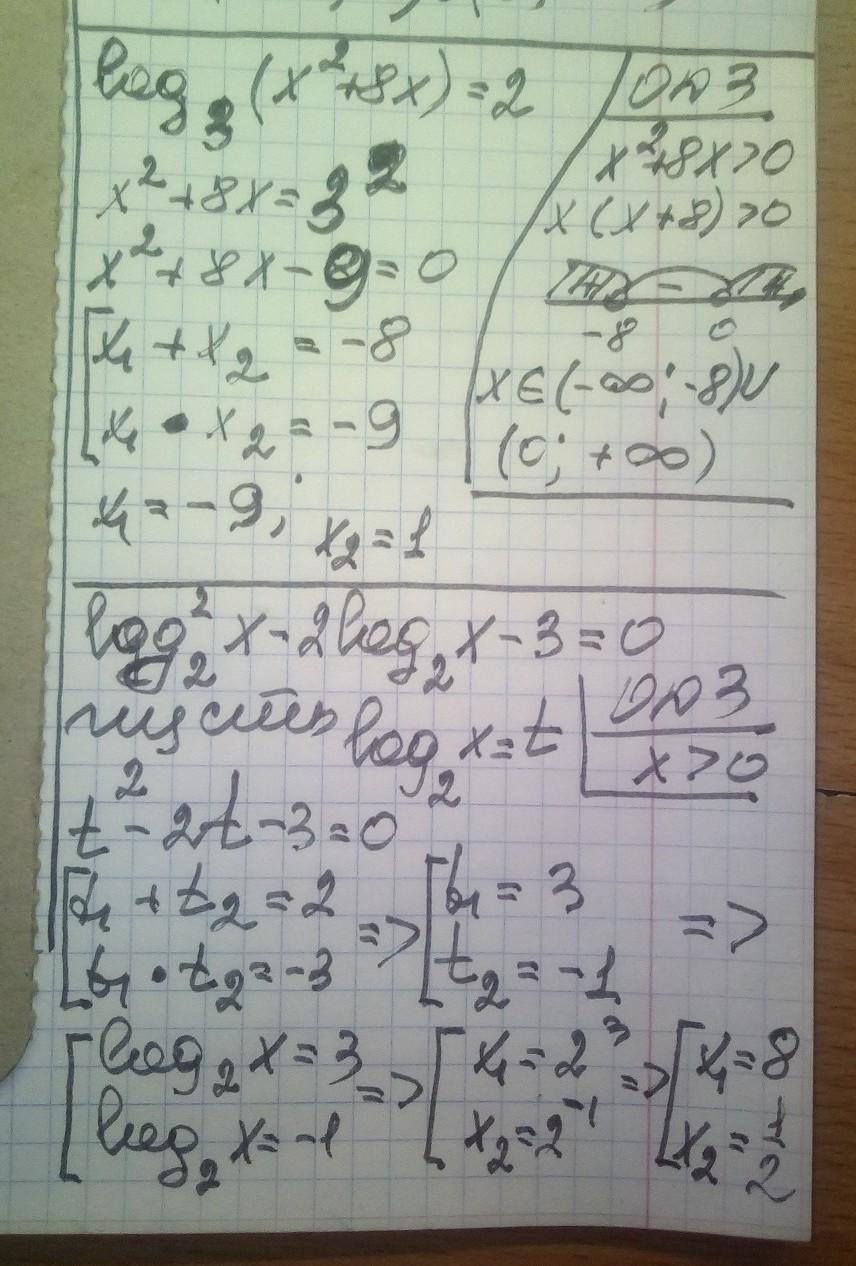 log₃(x²+8x)=2
ОДЗ
x²+8x>0
x(x+8)>0
+ - +
-8 0
x∈(-∞; -8)∪
(0; +∞)
x²+8x=3²
x²+8x-9=0
[x₁+x₂=-8
[x₁•x₂=-9
x₁=-9; x₂=1
log₂²x-2log₂x-3=0
пусть log₂x=t
ОДЗ
x>0
t²-2t-3=0
[t₁+t₂=2 => [t₁=3 =>
[t₁•t₂=-3 [t₂=-1
[log₂x=3 => [x₁=2³ => [x₁=8
[log₂x=-1 [x₂=2⁻¹ [x₂=1/2